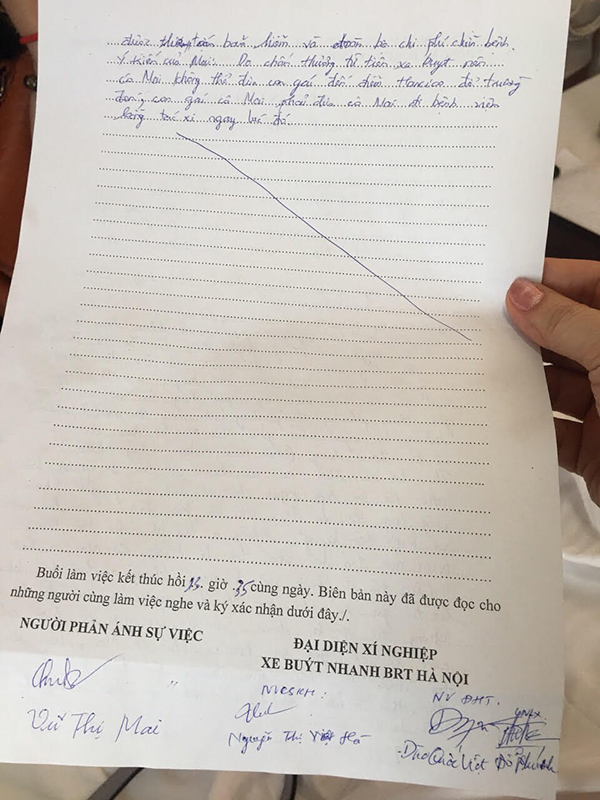 được thanh toán bảo hiểm và toàn bộ chi phí chữa bệnh.
Ý kiến của Mai: Do chấn thương từ trên xe buýt nên
cô Mai không thể đưa con gái đến điểm
con gái cô Mai phải đưa cô Mai đi bệnh viện
bằng tắc xi ngay lúc đó.
Buổi làm việc kết thúc hồi 15 giờ 35 cùng ngày. Biên bản này đã được đọc cho
những người cùng làm việc nghe và ký xác nhận dưới đây./.
NGƯỜI PHẢN ÁNH SỰ VIỆC
Vũ Thị Mai
ĐẠI DIỆN XÍ NGHIỆP
XE BUÝT NHANH BRT HÀ NỘI
NVCSKH:
Nguyễn Thị Việt Hà
NV ĐHT.
Đào Quốc Việt